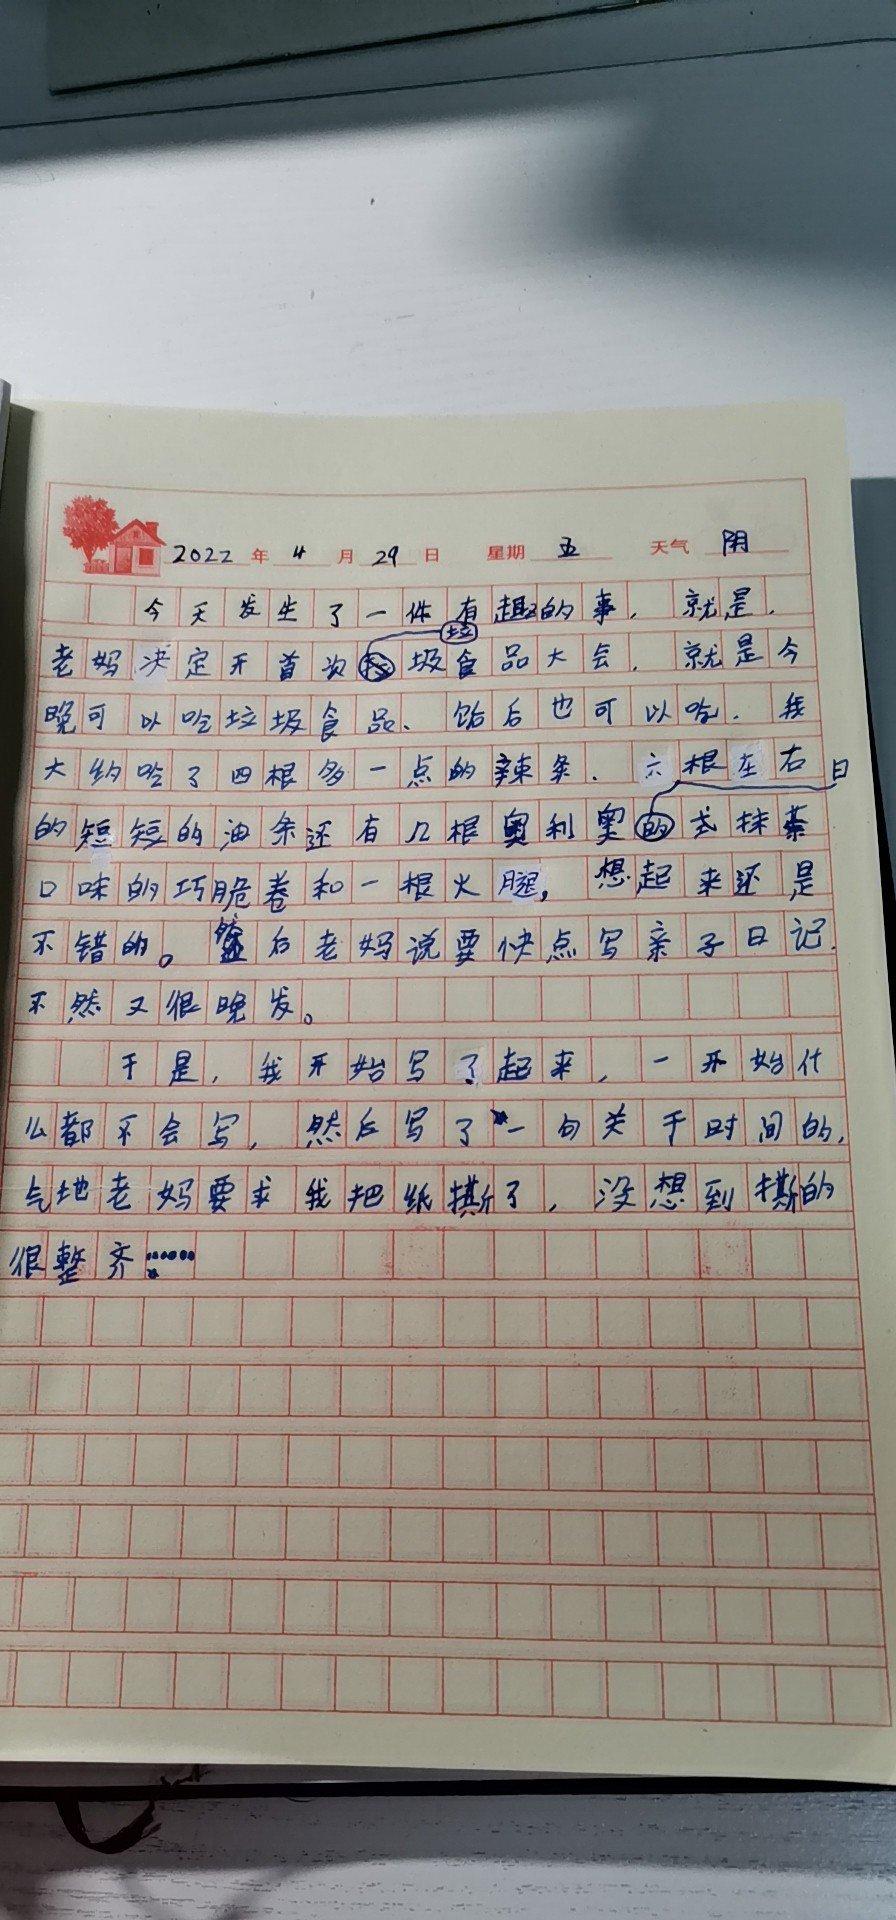 2022年4月29日 星期五 天气阴
今天发生了一件有趣的事，就是，
老妈决定开首次垃圾食品大会，就是今
晚可以吃垃圾食品、饭后也可以吃．我
大约吃了四根多一点的辣条、六根左右
的短短的油条还有几根奥利奥日式抹茶
口味的巧脆卷和一根火腿，想起来还是
不错的。然后老妈说要快点写亲子日记，
不然又很晚发。
于是，我开始写了起来，一开始什
么都不会写，然后写了一句关于时间的，
气地老妈要求我把纸撕了，没想到撕的
很整齐……